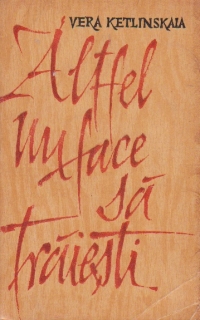 VERA KETLINSKAIA
Altfel
nu face
să
trăiești